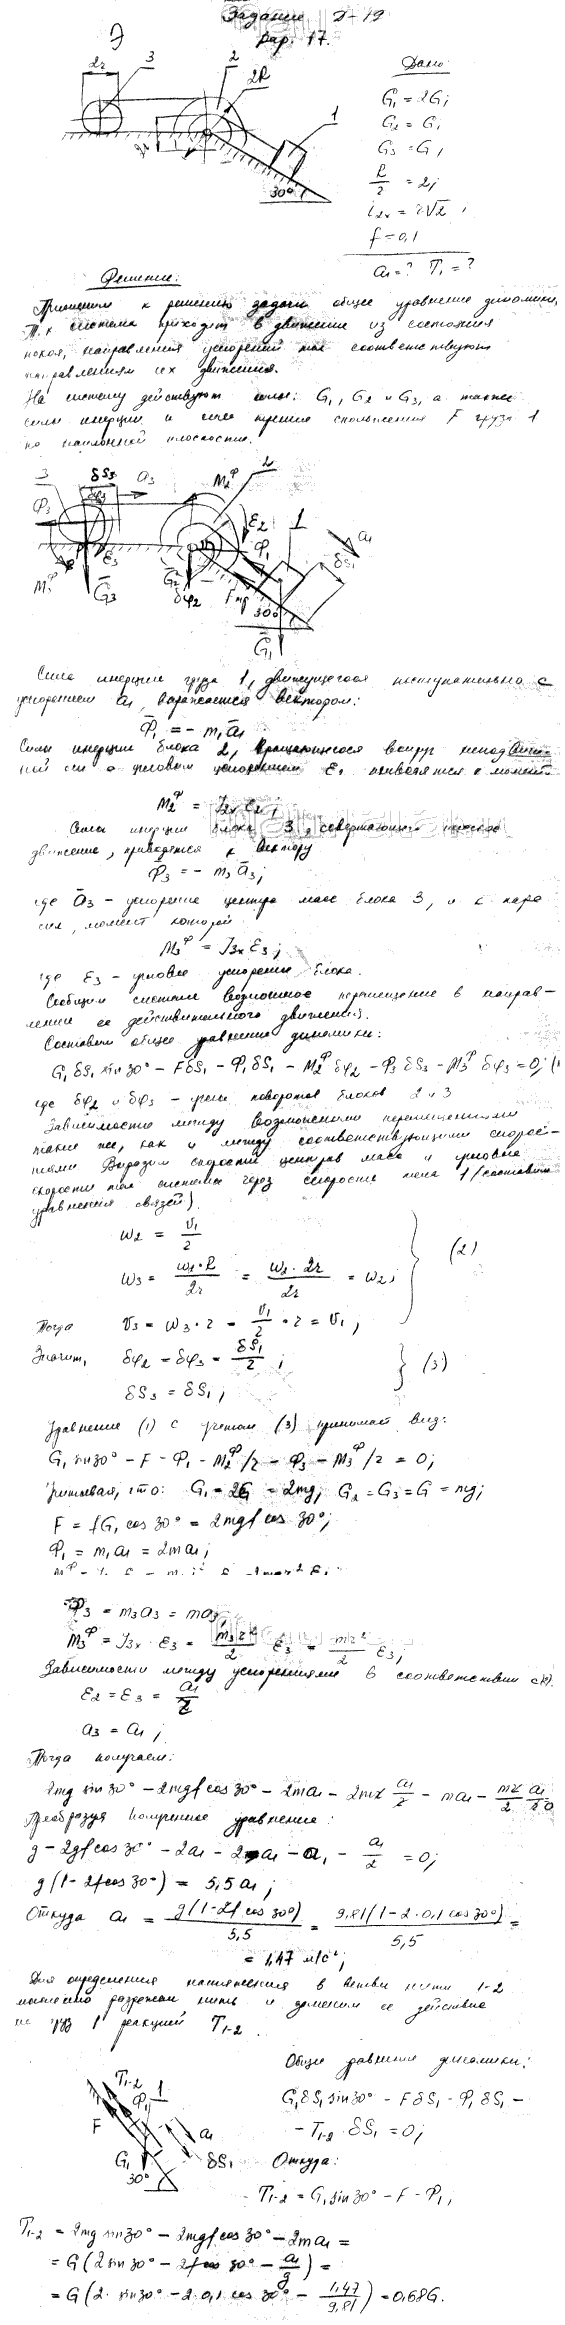 Задание Д-19
Вар. 17.
2r 3 2 2R 1
30°
Дано:
G₁ = 2G;
G₂ = G;
G₃ = G;
R/r = 2;
i₂ₓ = r√2;
f = 0,1
a₁ = ? T₁ = ?
Решение:
Применим к решению задачи общее уравнение динамики.
Т.к система приходит в движение из состояния
покоя, направления ускорений тел соответствуют
направлениям их движения.
На систему действуют силы: G₁, G₂ и G₃, а также
силы инерции и сила трения скольжения F груза 1
по наклонной плоскости.
3 δS₃ a₃ M₂ᶲ 2
Φ₃ δφ₃ ε₂ Φ₁ 1 a₁
M₃ᶲ ε₃ G₃ G₂ δφ₂ Fтр 30° δS₁
G₁
Сила инерции груза 1, движущегося поступательно с
ускорением a₁, выражается вектором:
Φ̄₁ = - m₁ā₁
Силы инерции блока 2, вращающегося вокруг неподвиж-
ной оси с угловым ускорением ε₂ приводятся к момент
M₂ᶲ = J₂ₓ ε₂;
Силы инерции блока 3, совершающего плоское
движение, приводятся к вектору
Φ̄₃ = - m₃ā₃;
где ā₃ - ускорение центра масс блока 3, и к паре
сил, момент которой
M₃ᶲ = J₃ₓ ε₃;
где ε₃ - угловое ускорение блока.
Сообщим системе возможное перемещение в направ-
лении ее действительного движения.
Составим общее уравнение динамики:
G₁ δS₁ sin30° - FδS₁ - Φ₁δS₁ - M₂ᶲ δφ₂ - Φ₃ δS₃ - M₃ᶲ δφ₃ = 0; (1
где δφ₂ и δφ₃ - углы поворотов блоков 2 и 3
Зависимости между возможными перемещениями
такие же, как и между соответствующими скорос-
тями. Выразим скорости центров масс и угловые
скорости тел системы через скорость тела 1 /составим
уравнения связей).
ω₂ = v₁/r
ω₃ = ω₂·R/2r = ω₂·2r/2r = ω₂; (2)
Тогда v₃ = ω₃·r = v₁/r · r = v₁;
Значит, δφ₂ = δφ₃ = δS₁/r;
δS₃ = δS₁; (3)
Уравнение (1) с учетом (3) принимает вид:
G₁ sin30° - F - Φ₁ - M₂ᶲ/r - Φ₃ - M₃ᶲ/r = 0;
Учитывая, что: G₁ = 2G = 2mg; G₂ = G₃ = G = mg;
F = fG₁ cos 30° = 2mgf cos 30°;
Φ₁ = m₁a₁ = 2ma₁;
Φ₃ = m₃a₃ = ma₃;
M₃ᶲ = J₃ₓ · ε₃ = m₃r²/2 ε₃ = mr²/2 ε₃;
Зависимости между ускорениями в соответствии с
ε₂ = ε₃ = a₁/r
a₃ = a₁;
Тогда получаем:
2mg sin30° - 2mgf cos30° - 2ma₁ - 2mr a₁/r - ma₁ - mr/2 a₁/r = 0
Преобразуя полученное уравнение:
g - 2gf cos30° - 2a₁ - 2a₁ - a₁ - a₁/2 = 0;
g(1-2f cos30°) = 5,5a₁;
Откуда a₁ = g(1-2f cos30°)/5,5 = 9,81(1-2·0,1 cos30°)/5,5 =
= 1,47 м/с²;
Для определения натяжения в ветви нити 1-2
мысленно разрежем нить и заменим ее действие
на груз 1 реакцией T₁₋₂.
T₁₋₂ Φ₁ 1 F a₁ G₁ δS₁ 30°
Общее уравнение динамики:
G₁δS₁ sin30° - FδS₁ - Φ₁ δS₁ -
- T₁₋₂ · δS₁ = 0;
Откуда:
T₁₋₂ = G₁ sin30° - F - Φ₁;
T₁₋₂ = 2mg sin30° - 2mgf cos30° - 2ma₁ =
= G(2sin30° - 2f cos 30° - a₁/g) =
= G(2· sin30° - 2·0,1 cos 30° - 1,47/9,81) = 0,68G.